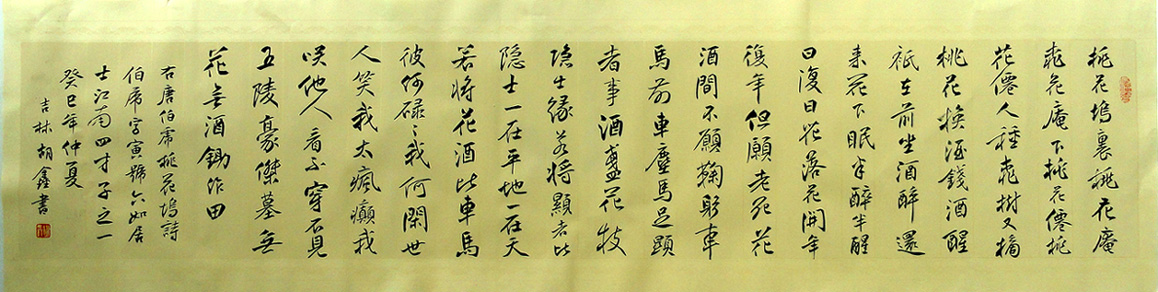 桃花塢裏桃花庵
桃花庵下桃花僊桃
花僊人種桃樹又摘
桃花換酒錢酒醒
祇在前坐酒醉還
来花下眠半醉半醒
日復日花落花開年
復年但願老死花
酒間不願鞠躬車
馬前車塵馬足顯
者事酒盞花枝
隐士緣若將顯者比
隐士一在平地一在天
若將花酒比車馬
彼何碌々我何閑世
人笑我太瘋癲我
咲他人看不穿不見
五陵豪傑墓無
花無酒鋤作田
右唐伯虎桃花塢詩
伯虎字寅號六如居
士江南四才子之一
癸巳年仲夏
吉林胡鑫書